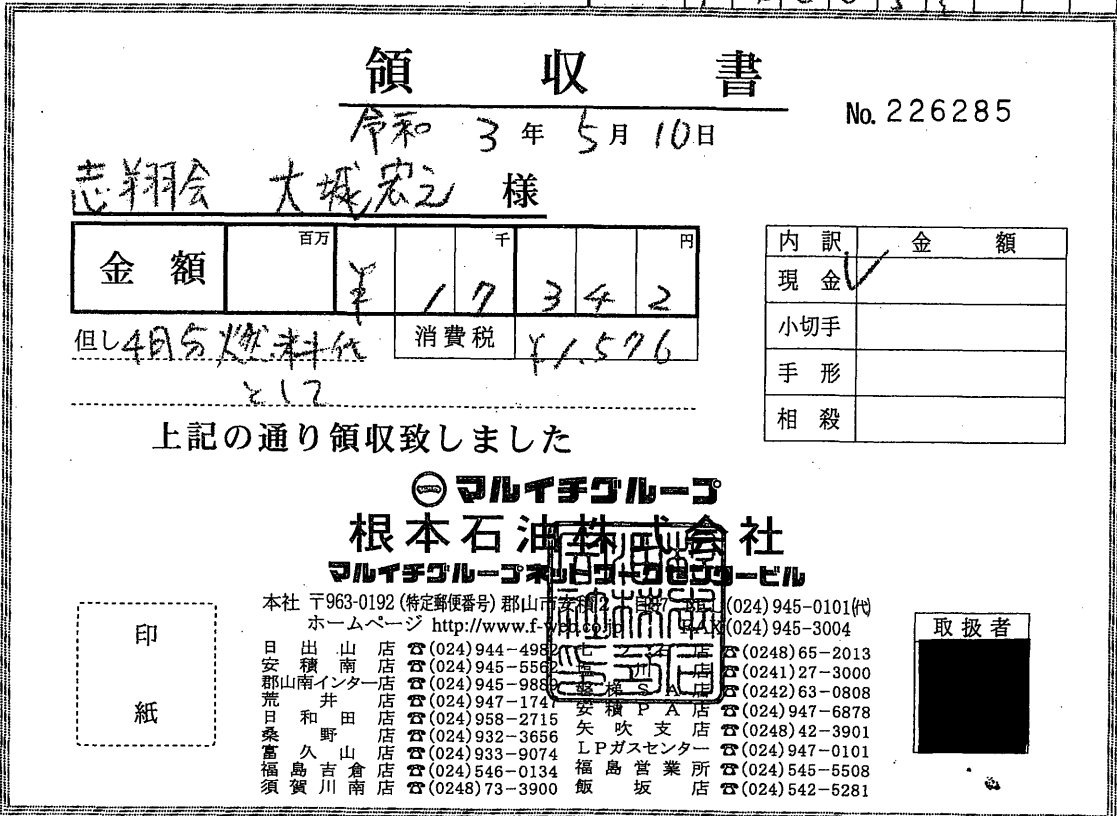 領収書
No. 226285
令和 3 年 5 月 10 日
志翔会 大城宏之 様
金額 百万 千 円
¥ 1 7 3 4 2
但し 4月分燃料代
として
消費税 ¥1,576
内訳 金額
現金 ✓
小切手
手形
相殺
上記の通り領収致しました
マルイチグループ
根本石油株式会社
マルイチグループネットワークセンタービル
本社 〒963-0192 (特定郵便番号) 郡山市安積2 (024)945-0101(代)
ホームページ http://www.f-web.co.jp FAX(024)945-3004
日出山店 ☎(024)944-4982
安積南店 ☎(024)945-5562
郡山南インター店 ☎(024)945-9889
荒井店 ☎(024)947-1747
日和田店 ☎(024)958-2715
桑野店 ☎(024)932-3656
富久山店 ☎(024)933-9074
福島吉倉店 ☎(024)546-0134
須賀川南店 ☎(0248)73-3900
店 ☎(0248)65-2013
川店 ☎(0241)27-3000
磐梯SA店 ☎(0242)63-0808
安積PA店 ☎(024)947-6878
矢吹支店 ☎(0248)42-3901
LPガスセンター ☎(024)947-0101
福島営業所 ☎(024)545-5508
飯坂店 ☎(024)542-5281
印紙
取扱者